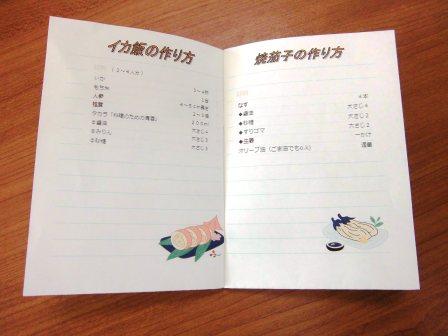 イカ飯の作り方
(2~4人分)
いか 3~4杯
もち米 1合
人参 4~5cm長さ
椎茸 2~3個
タカラ「料理のための清酒」 200ml
※醤油 大さじ4
※みりん 大さじ3
※砂糖 大さじ3
焼茄子の作り方
なす 4本
◆醤油 大さじ4
◆砂糖 大さじ2
◆すりゴマ 大さじ2
◆生姜 一かけ
オリーブ油(ごま油でもo.k) 適量